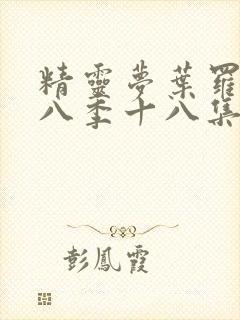 精靈夢葉羅
八季十八集
彭鳳霞